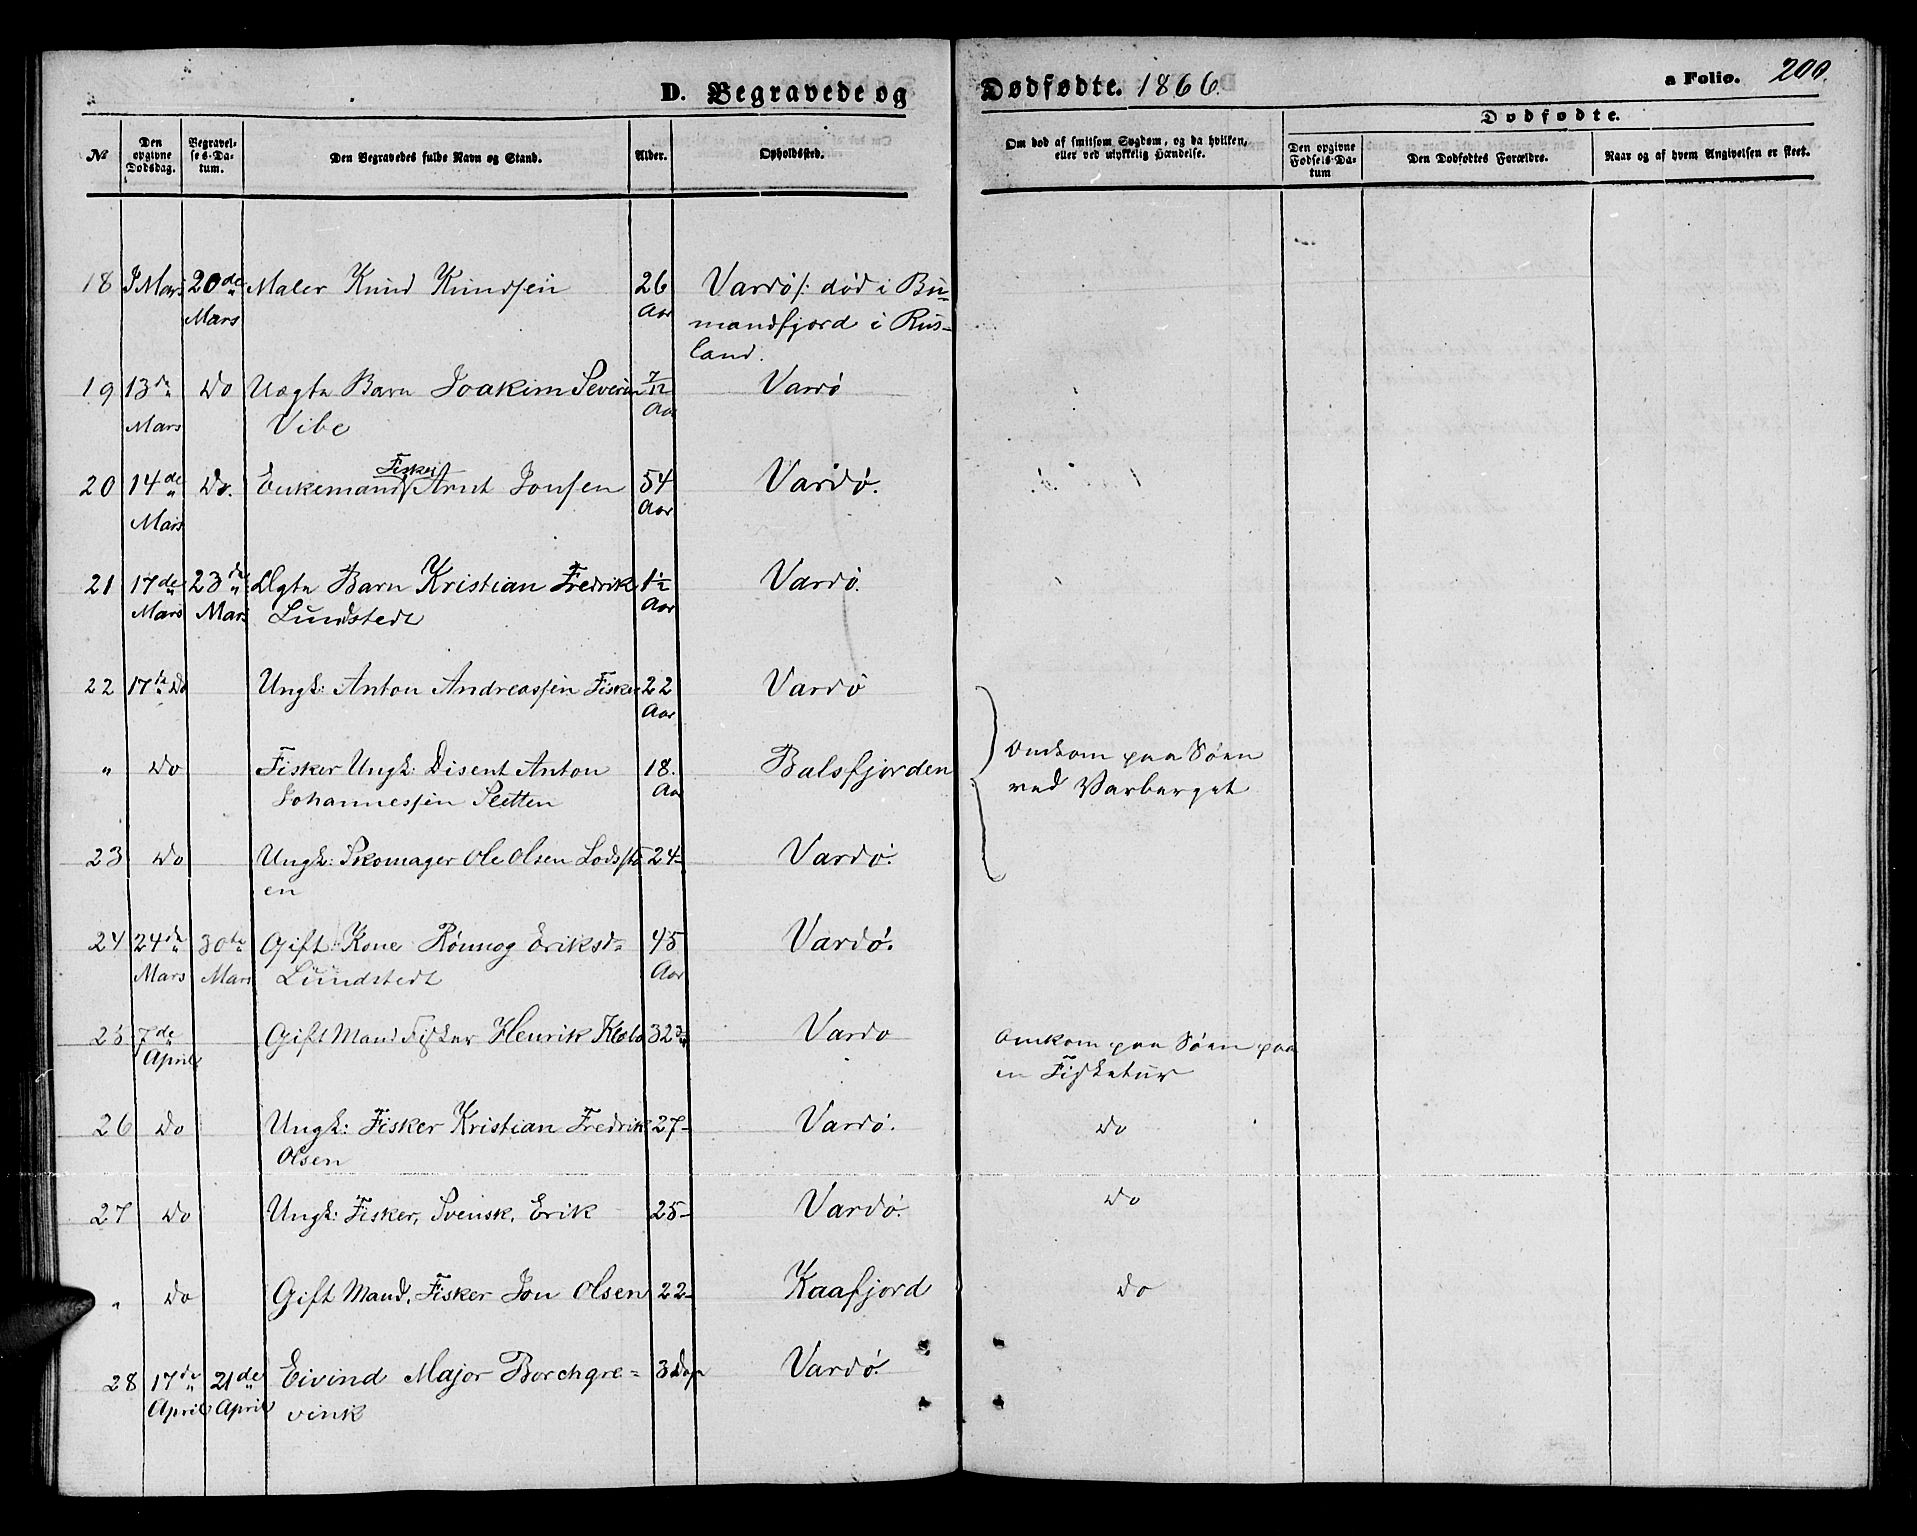 D. Begravede og Dødfødte. 1866. a Folio. 200.
No
Den opgivne Dødsdag.
Begravelses-Datum.
Den Begravedes fulde Navn og Stand.
Alder.
Opholdssted.
Om død af smitsom Sygdom, og da hvilken, eller ved ulykkelig Hændelse.
Dødfødte.
Den opgivne Fødsels-Datum
Den Dødfødtes Forældre.
Naar og af hvem Angivelsen er skeet.
18 Mars 20de Maler Knud Knudsen 26 Vardø /: død i Bu-
Mars Aar mandfjord i Rus-
land.
19 13de Do Uægte Barn Joakim Severin 7/12 Vardø
Mars Vibe Aar
20 14de Do. Enkemand Fisker Arnt Jonsen 54 Vardø.
Mars Aar
21 17de 23de Ægte Barn Kristian Fredrik 1½ Vardø.
Mars Mars Lundstedt Aar
22 17de Do Ungk: Anton Andreassen Fisker 22 Vardø
Aar
" Do Fisker Ungk: Disent Anton 18. Balsfjorden Omkom paa Søen
Johannessen Sletten Aar ved Varberget
23 Do Ungk: Skomager Ole Olsen 24- Vardø.
en
24 24de 30te Gift Kone Rønnog Eriksd= 45 Vardø.
Mars Mars Lundstedt Aar
25 7de Gift Mand Fisker Henrik 32 Vardø Omkom paa Søen paa
April en Fisketur
26 Do Ungk: Fisker Kristian Fredrik 27- Vardø. Do
Olsen
27 Do Ungk: Fisker, Svensk, Erik 25- Vardø. Do
" Do Gift Mand, Fisker Jon Olsen 22- Kaafjord Do
28 17de 21de Eivind Major Borchgre= 3 Dage Vardø.
April April vink